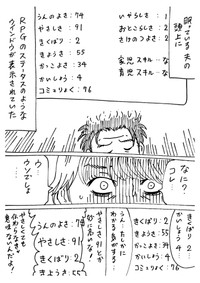 眠っている夫の
頭上に
RPGの
ステータスのような
ウィンドウが表示されていた
うんのよさ：74
やさしさ：91
きくばり：2
きようさ：55
かっこよさ：34
かいしょう：4
コミュりょく：76
いやらしさ：1
おとこらしさ：2
さけのつよさ：2
家事スキル…な
育児スキル…な
なに？
コレ…
ウ…
ウソでしょ
かっこよさ 34
かいしょう 4
きくばり 2
きくばり：2
きようさ：55
うんのよさ：74
やさしさ：91
やさしさ 91とか
妙に高いな！
やさしくても
意味ないんだよ！